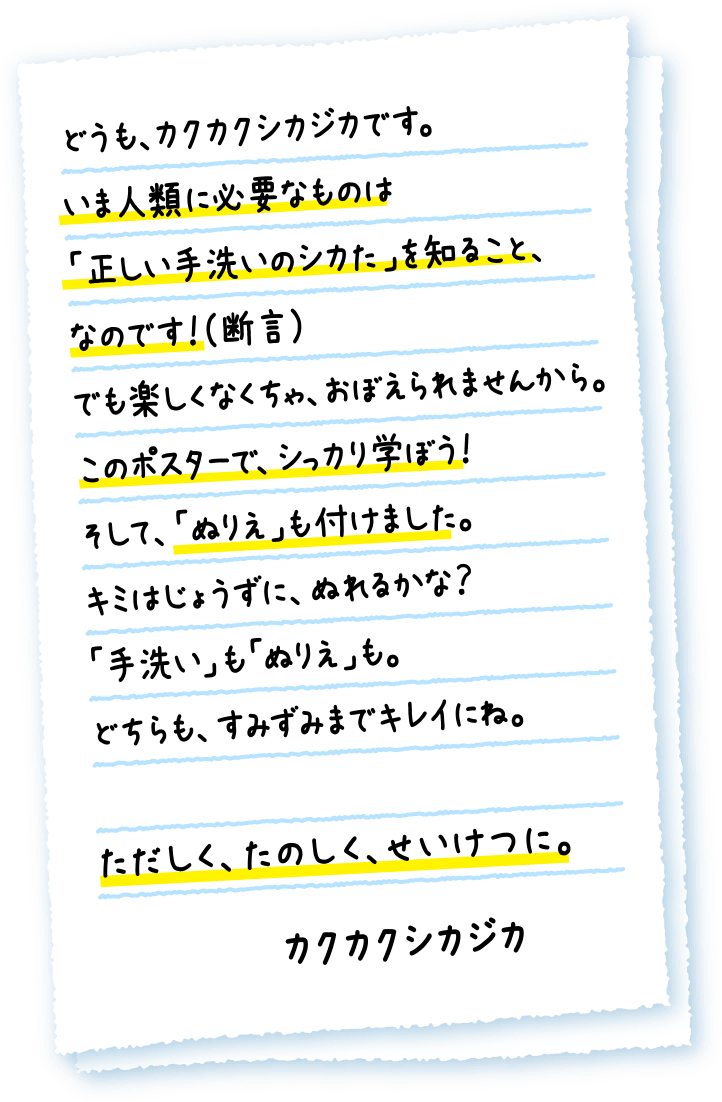 どうも、カクカクシカジカです。
いま人類に必要なものは
「正しい手洗いのシカた」を知ること、
なのです！（断言）
でも楽しくなくちゃ、おぼえられませんから。
このポスターで、シっカリ学ぼう！
そして、「ぬりえ」も付けました。
キミはじょうずに、ぬれるかな？
「手洗い」も「ぬりえ」も。
どちらも、すみずみまでキレイにね。
ただしく、たのしく、せいけつに。
カクカクシカジカ